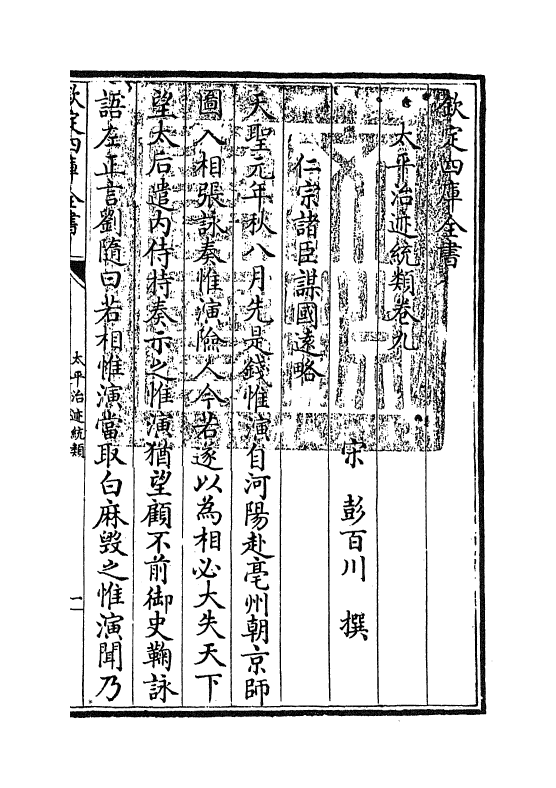 欽定四庫全書
太平治迹統類卷九
宋 彭百川 撰
仁宗諸臣謀國遠略
天聖元年秋八月先是錢惟演自河陽赴亳州朝京師
圖入相張詠奏惟演憸人今若遂以為相必大失天下
望太后遣内侍持奏示之惟演猶望顧不前御史鞠詠
語左正言劉隨曰若相惟演當取白麻毁之惟演聞乃
欽定四庫全書
太平治迹統類
一